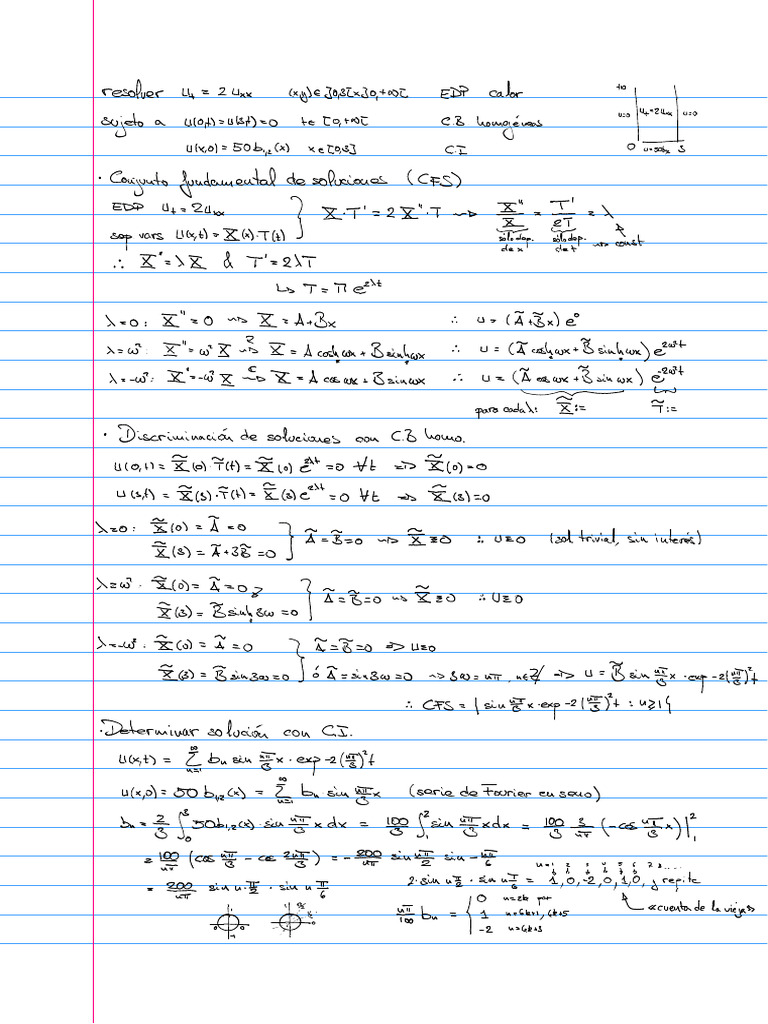 resolver u_t = 2u_xx (x,y)∈]0,3[x]0,+∞[ EDP calor
sujeto a u(0,t)=u(3,t)=0 t∈[0,+∞[ C.B homogéneas
u(x,0) = 50 b_{1,2}(x) x∈[0,3] C.I
+∞ u=0 u_t=2u_xx u=0 0 u=50b_{1,2} 3
· Conjunto fundamental de soluciones (CFS)
EDP u_t = 2u_xx
sep vars u(x,t) = X(x)·T(t) } X·T' = 2X''·T ⇝ X''/X = T'/2T = λ
sólo dep. de x sólo dep. de t ⇝ const
∴ X'' = λX & T' = 2λT
↳ T = Π e^{2λt}
λ=0: X'' = 0 ⇝ X = A+Bx ∴ u = (Ã+B̃x) e^0
λ=ω²: X'' = ω²X ⇝ X = A cosh ωx + B sinh ωx ∴ u = (Ã cosh ωx + B̃ sinh ωx) e^{2ω²t}
λ=-ω²: X'' = -ω²X ⇝ X = A cos ωx + B sin ωx ∴ u = (Ã cos ωx + B̃ sin ωx) e^{-2ω²t}
para cada λ: X̃:= T̃:=
· Discriminación de soluciones con C.B homo.
u(0,t) = X̃(0)·T̃(t) = X̃(0) e^{2λt} = 0 ∀t ⇒ X̃(0)=0
u(3,t) = X̃(3)·T̃(t) = X̃(3) e^{2λt} = 0 ∀t ⇒ X̃(3)=0
λ=0: X̃(0) = Ã = 0
X̃(3) = Ã+3B̃ = 0 } Ã = B̃ = 0 ⇝ X̃ ≡ 0 ∴ u≡0 (sol trivial, sin interés)
λ=ω²: X̃(0) = Ã = 0
X̃(3) = B̃ sinh 3ω = 0 } Ã = B̃ = 0 ⇝ X̃ ≡ 0 ∴ u≡0
λ=-ω²: X̃(0) = Ã = 0 } Ã = B̃ = 0 ⇒ u≡0
X̃(3) = B̃ sin 3ω = 0 ó Ã = sin 3ω = 0 ⇝ 3ω = nπ, n∈Z ⇒ u = B̃ sin nπ/3 x · exp -2(nπ/3)²t
∴ CFS = { sin nπ/3 x · exp -2(nπ/3)²t : n≥1 }
· Determinar solución con C.I.
u(x,t) = Σ_{n=1}^∞ b_n sin nπ/3 x · exp -2(nπ/3)²t
u(x,0) = 50 b_{1,2}(x) = Σ_{n=1}^∞ b_n · sin nπ/3 x (serie de Fourier en seno)
b_n = 2/3 ∫_0^3 50 b_{1,2}(x) · sin nπ/3 x dx = 100/3 ∫_1^2 sin nπ/3 x dx = 100/3 3/nπ (-cos nπ/3 x)|_1^2
= 100/nπ (cos nπ/3 - cos 2nπ/3) = -200/nπ sin nπ/2 sin -nπ/6
= 200/nπ sin n·π/2 · sin n π/6 2·sin n π/2 · sin n π/6 = 1, 0, -2, 0, 1, 0, y repite
n = 1 2 3 4 5 6 7 8 ....
nπ/100 b_n = { 0 n=2k par
1 n=6k+1, 6k+5
-2 n=6k+3
«cuenta de la vieja»